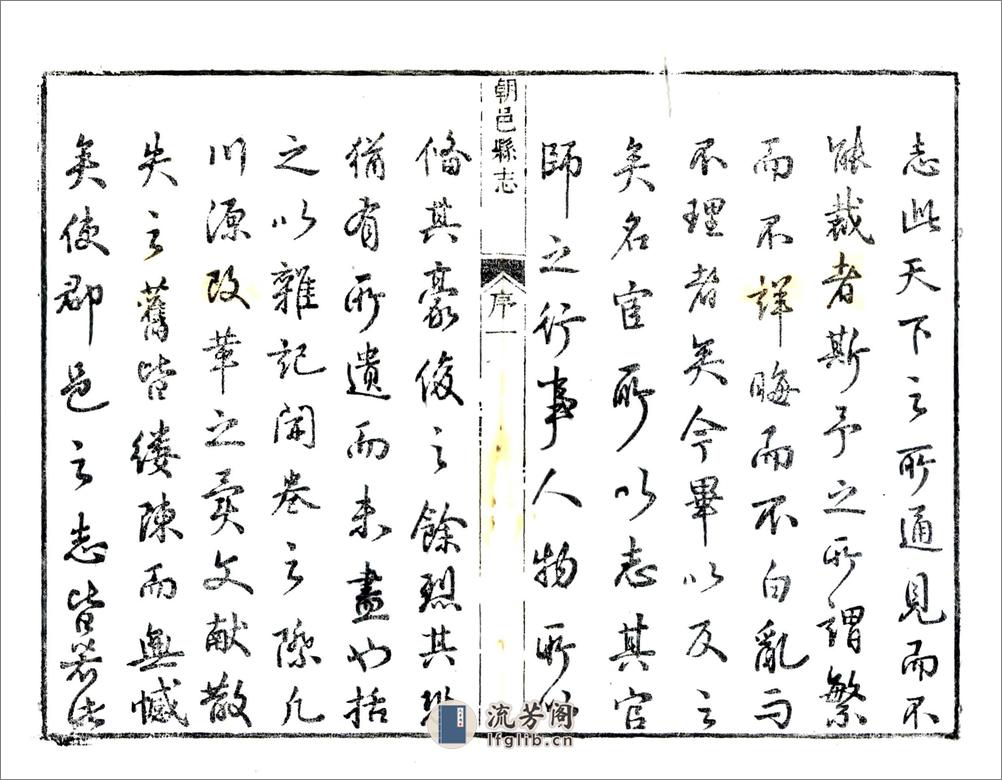 志此天下之所通見而不
能裁者斯予之所謂繁
而不詳晦而不白亂而
不理者矣今畢以反之
矣名宦所以志其官
師之行事人物所以
朝邑縣志
序一
備其豪俊之餘烈其
猶有所遺而未盡也括
之以雜記開卷之際凡
川源改革之異文献散
失之舊皆縷陳而無憾
矣使郡邑之志皆若此
流芳阁
lfglib.cn